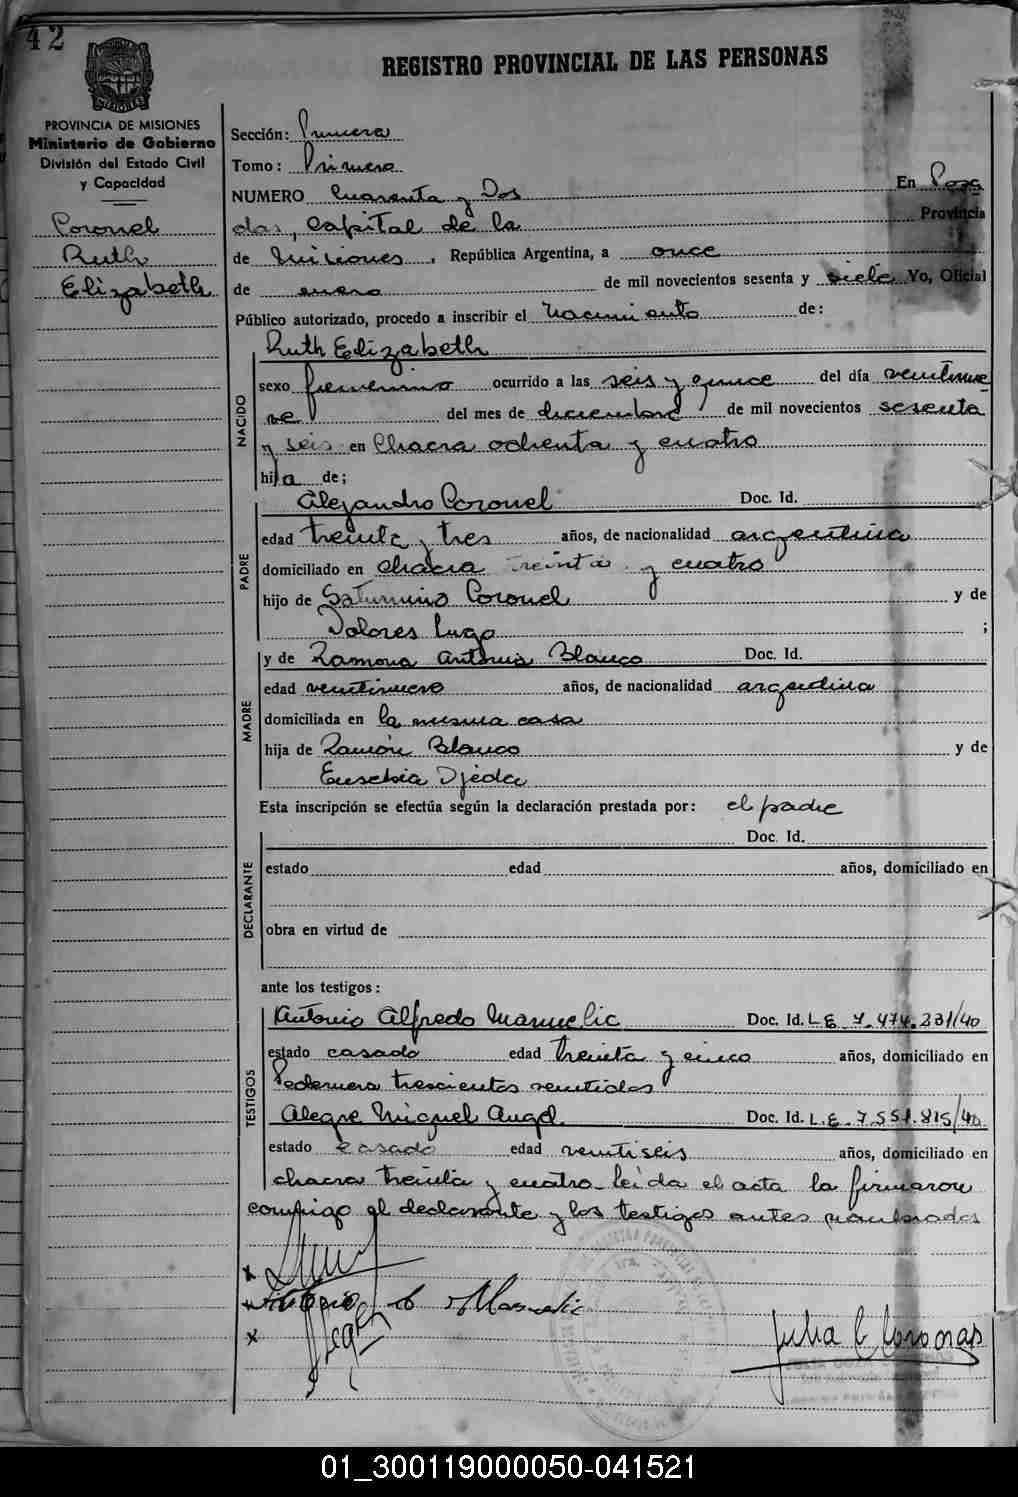 42
REGISTRO PROVINCIAL DE LAS PERSONAS
PROVINCIA DE MISIONES
Ministerio de Gobierno
División del Estado Civil
y Capacidad
Coronel
Ruth
Elizabeth
Sección: Primera
Tomo: Primero
NUMERO Cuarenta y Dos En Posa
das, Capital de la Provincia
de Misiones, República Argentina, a once
de enero de mil novecientos sesenta y siete Yo, Oficial
Público autorizado, procedo a inscribir el nacimiento de:
Ruth Elizabeth
NACIDO
sexo femenino ocurrido a las seis y quince del día veintinue
ve del mes de diciembre de mil novecientos sesenta
y seis en Chacra ochenta y cuatro
hija de;
PADRE
Alejandro Coronel Doc. Id.
edad treinta y tres años, de nacionalidad argentina
domiciliado en chacra treinta y cuatro
hijo de Saturnino Coronel y de
Dolores Lugo ;
MADRE
y de Ramona Antonia Blanco Doc. Id.
edad veintinueve años, de nacionalidad argentina
domiciliada en la misma casa
hija de Ramón Blanco y de
Eusebia Ojeda
Esta inscripción se efectúa según la declaración prestada por: el padre
DECLARANTE
Doc. Id.
estado edad años, domiciliado en
obra en virtud de
ante los testigos:
TESTIGOS
Antonio Alfredo Maruelic Doc. Id. L E 7.474.231/40
estado casado edad treinta y cinco años, domiciliado en
Pedernera trescientos veintidos
Alegre Miguel Angel Doc. Id. L.E. 7.551.815/40
estado casado edad veintiseis años, domiciliado en
chacra treinta y cuatro leída el acta la firmaron
conmigo el declarante y los testigos antes nombrados
x
x
x
Julia C Coronas
01_300119000050-041521